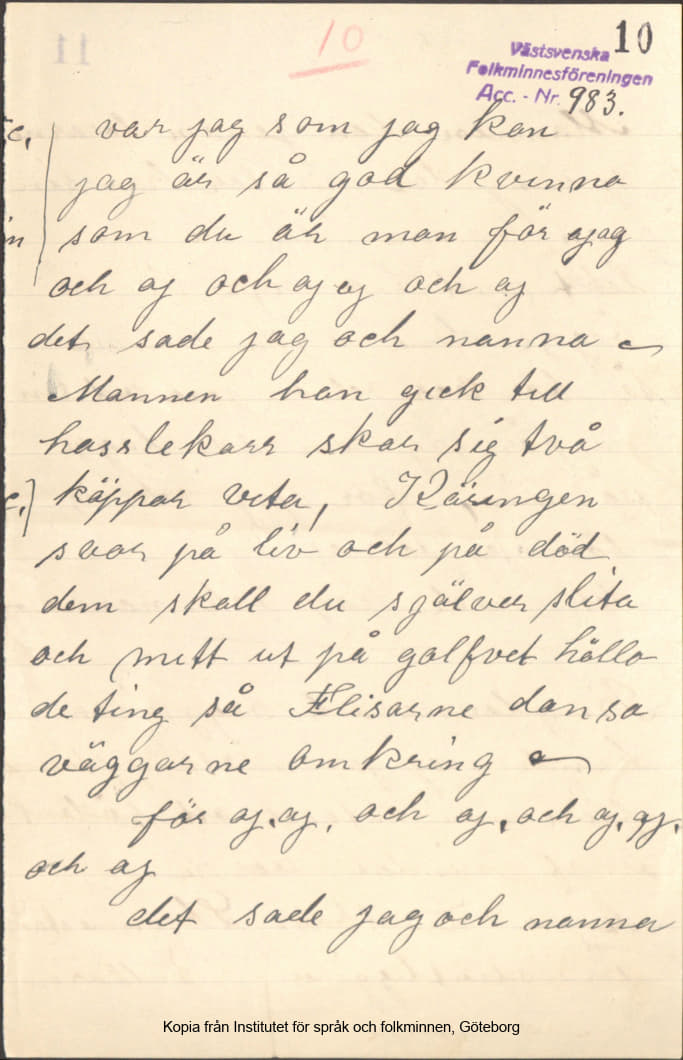 10
10
Västsvenska
Folkminnesföreningen
Acc. - Nr. 983.
var jag som jag kan
jag är så god kvinna
som du är man för ajag
och aj och aj aj och aj
det sade jag och nanna
Mannen han gick till
hasslekarr skar sig två
käppar vita, Käringen
svor på liv och på död
dem skall du själver slita
och mitt ut på golfvet höllo
de ting så Flisarne dansa
väggarne omkring
för aj. aj. och aj. och aj. aj.
och aj
det sade jag och nanna
Kopia från Institutet för språk och folkminnen, Göteborg